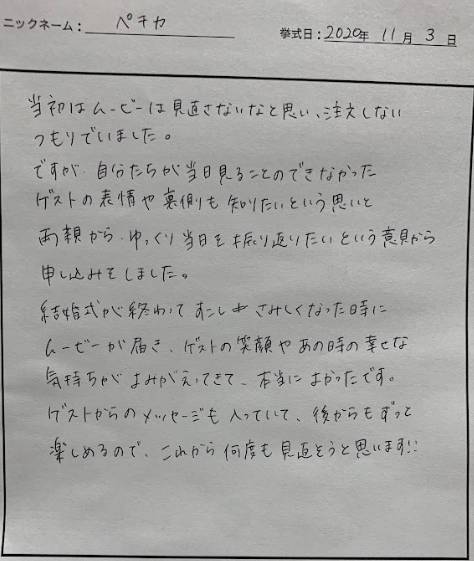 ニックネーム: ペチカ 挙式日: 2020年 11月 3日
当初はムービーは見直さないなと思い、注文しない
つもりでいました。
ですが、自分たちが当日見ることのできなかった
ゲストの表情や裏側も知りたいという思いと
両親から、ゆっくり当日を振り返りたいという意見から
申し込みをしました。
結婚式が終わってすこしさみしくなった時に
ムービーが届き、ゲストの笑顔やあの時の幸せな
気持ちがよみがえってきて、本当によかったです。
ゲストからのメッセージも入っていて、後からもずっと
楽しめるので、これから何度も見直そうと思います!!